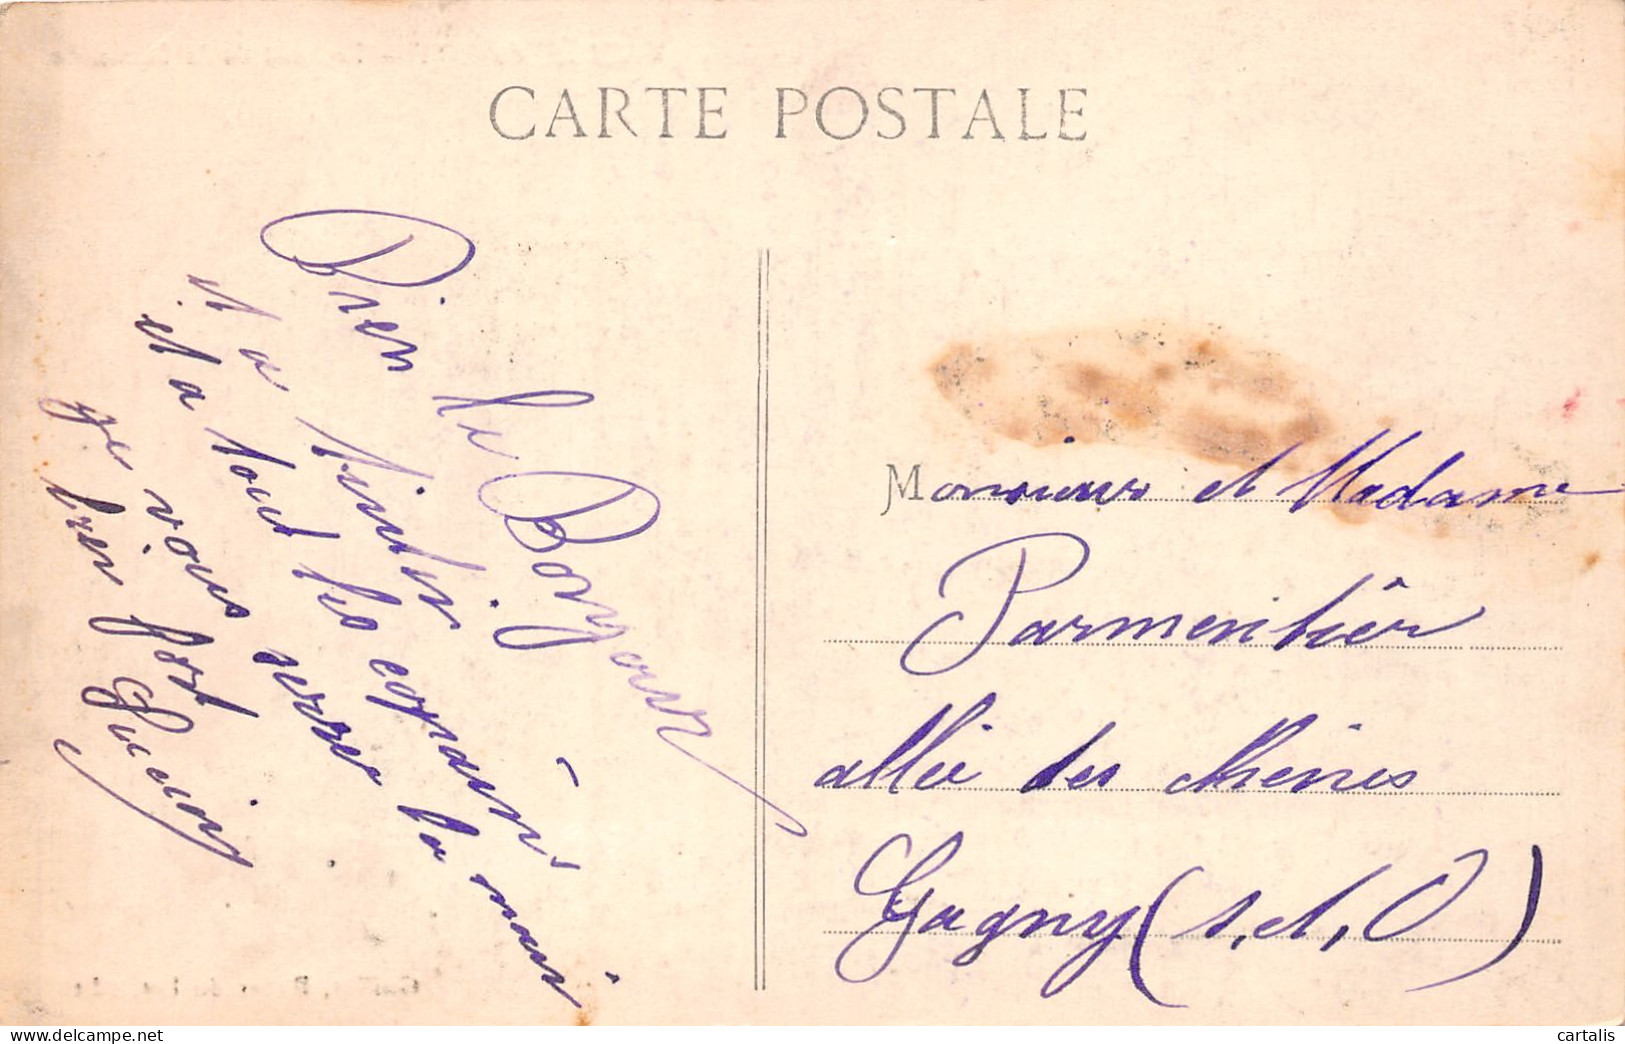 CARTE POSTALE
Bien le Bonjour
et a
et a tout les copains
je vous serre la main
bien fort
Lucien
Monsieur et Madame
Parmentier
allée des chênes
Gagny (S. et. O)
delcampe.net
cartalis